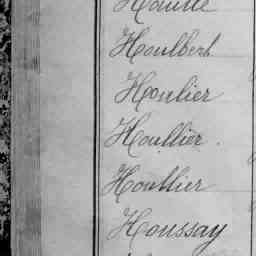 Houlbert
Houlier
Houllier.
Houllier
Houssay